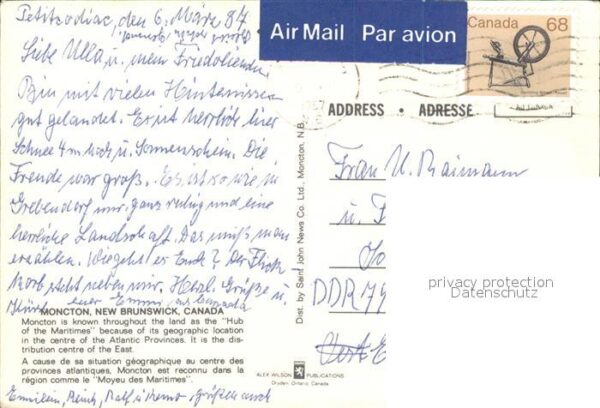 Petitcodiac, den 6. März 87
Liebe Ulla u. mein Friedolienchen
Bin mit vielen Hinternissen
gut gelandet. Es ist herrlich hier
Schnee 4 m hoch u. Sonnenschein. Die
Freude war groß. Es ist so wie in
Grebendorf nur ganz ruhig und eine
herrliche Landschaft. Das muß man
erzählen. Wie geht es Euch? Der
steht neben mir. Herzl. Grüße u.
Küsse eure Emmi aus Canada
MONCTON, NEW BRUNSWICK, CANADA
Moncton is known throughout the land as the "Hub
of the Maritimes" because of its geographic location
in the centre of the Atlantic Provinces. It is the dis-
tribution centre of the East.
A cause de sa situation géographique au centre des
provinces atlantiques, Moncton est reconnu dans la
région comme le "Moyeu des Maritimes".
Ralf grüßen auch
Dist. by Saint John News Co. Ltd., Moncton, N.B.
ALEX WILSON PUBLICATIONS
Dryden Ontario Canada
Air Mail Par avion
Canada 68
ADDRESS • ADRESSE
Frau U. Raimann
u.
DDR 79
privacy protection
Datenschutz